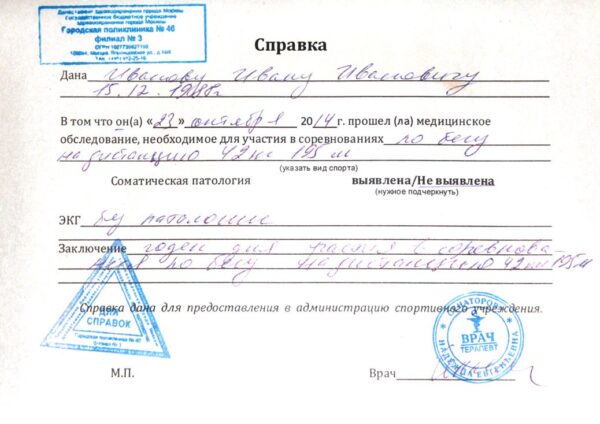 Департамент здравоохранения города Москвы
Государственное бюджетное учреждение
здравоохранения города Москвы
Городская поликлиника № 46
филиал № 3
Справка
Дана Иванову Ивану Ивановичу
15.12.1988г
В том что он(а) «23» сентября 2014г. прошел (ла) медицинское
обследование, необходимое для участия в соревнованиях по бегу
на дистанцию 42 км 195 м
(указать вид спорта)
Соматическая патология выявлена/Не выявлена
(нужное подчеркнуть)
ЭКГ без патологии
Заключение годен для участия в соревнова-
ниях по бегу на дистанцию 42 км 195 м
ДЛЯ
СПРАВОК
Справка дана для предоставления в администрацию спортивного учреждения.
ВРАЧ
ТЕРАПЕВТ
НАДЕЖДА ЕВГЕНЬЕВНА
М.П. Врач